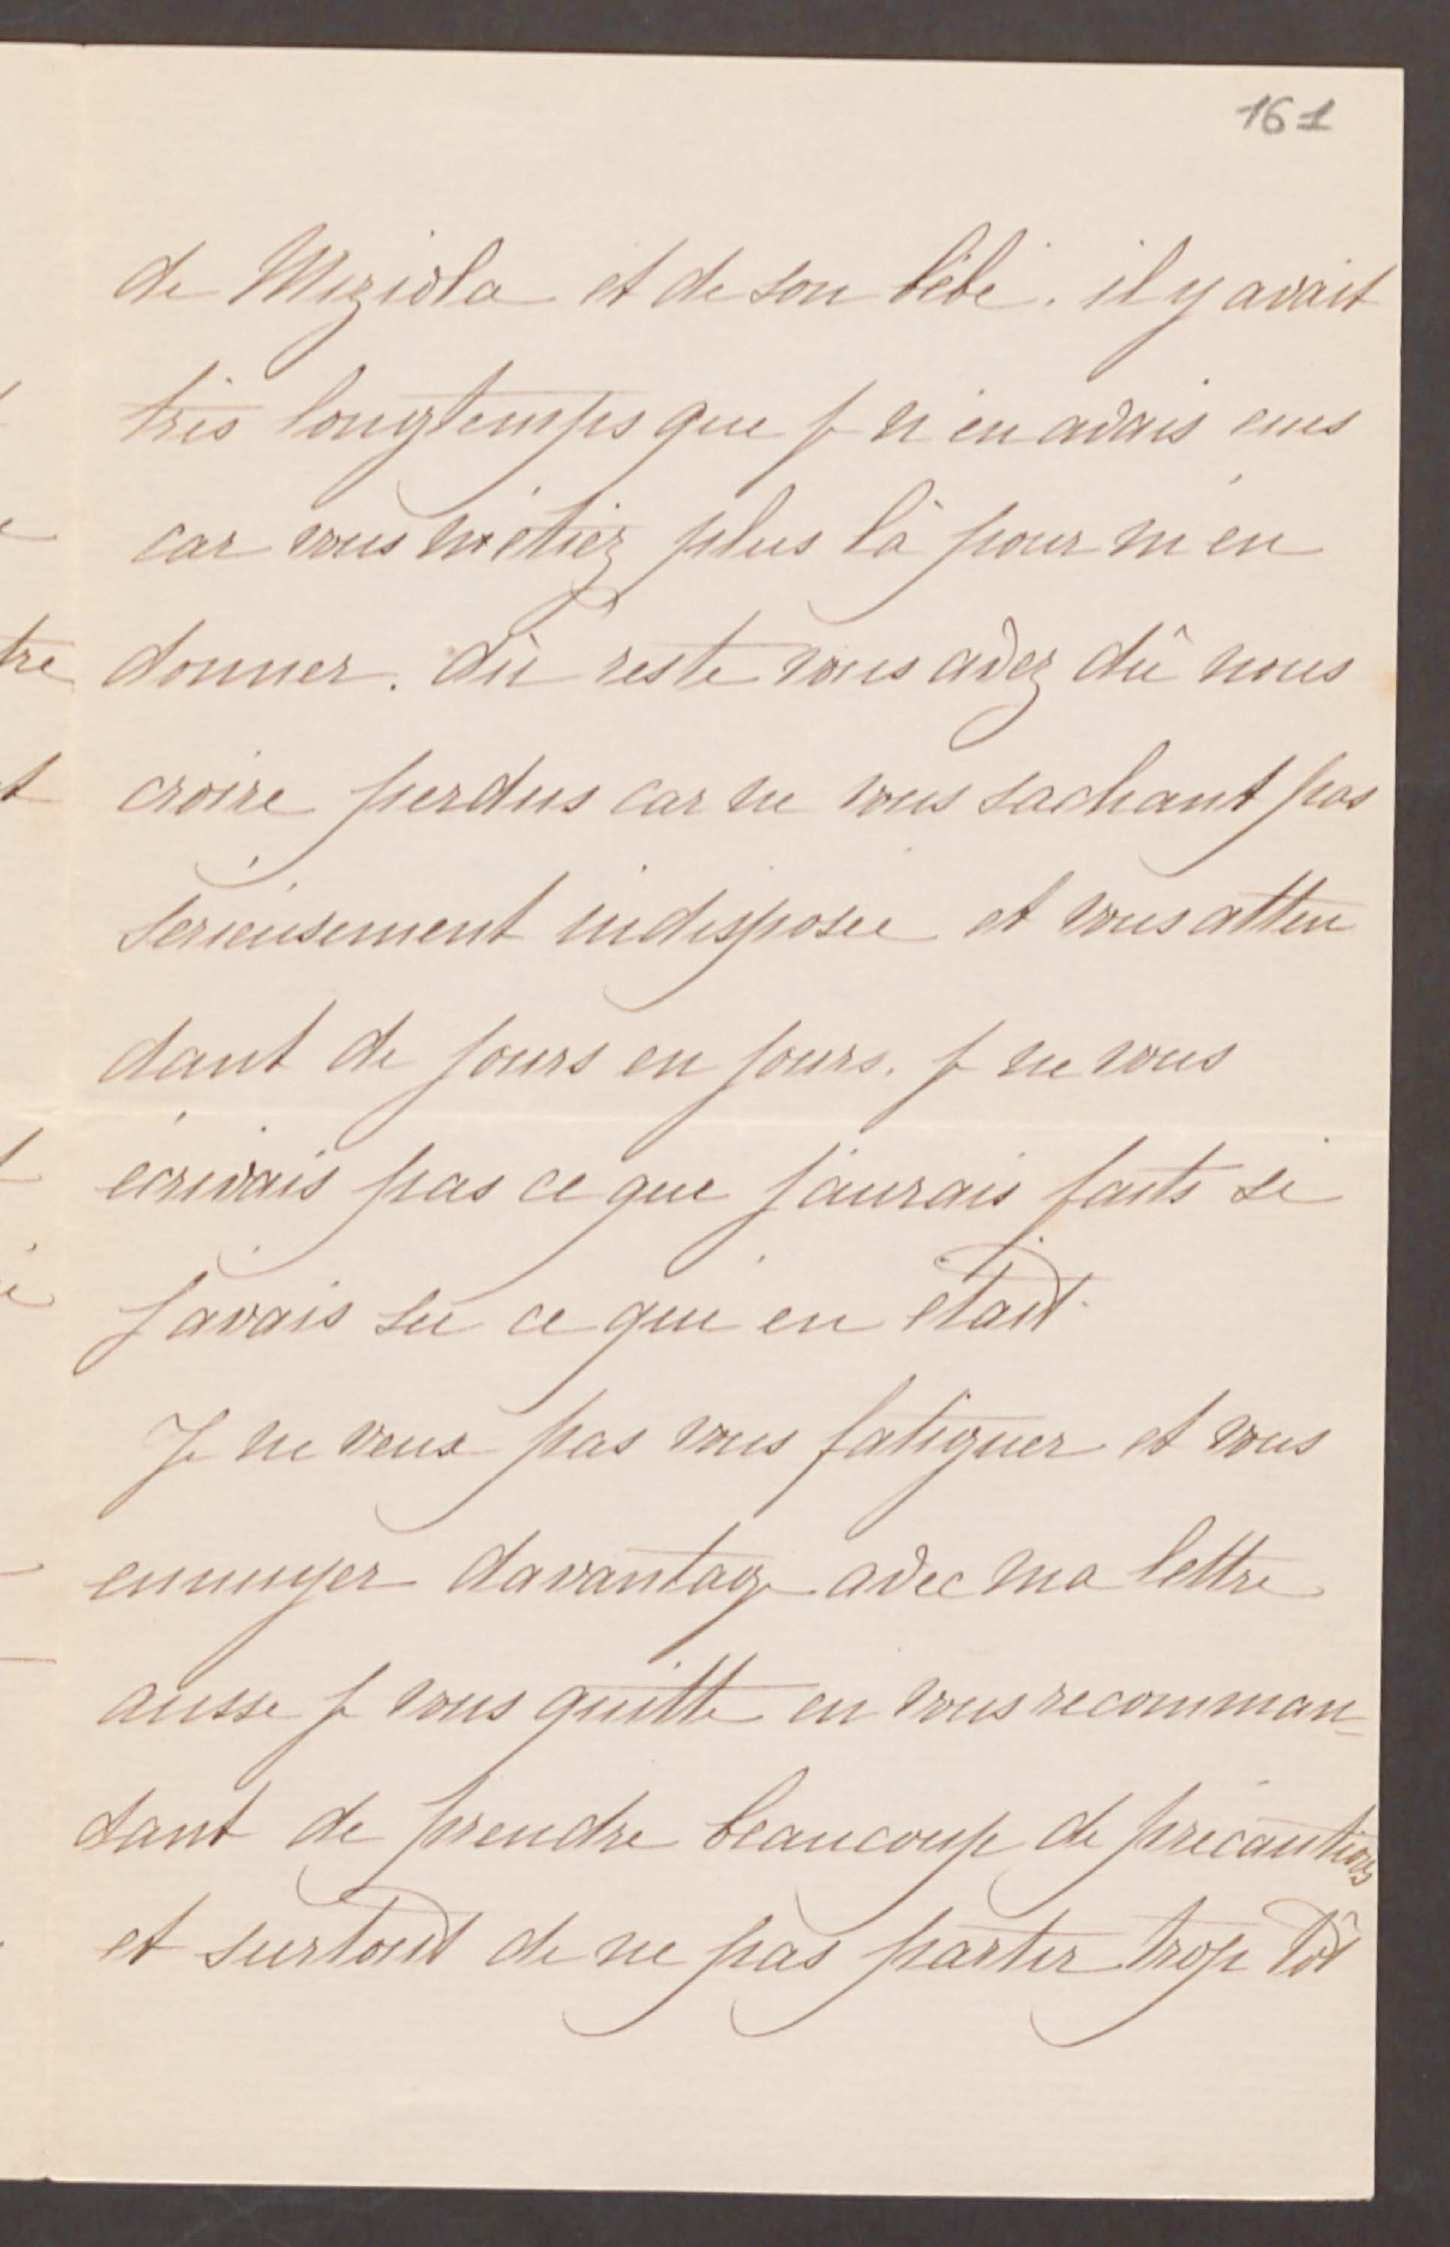 161
de Meziola et de son bébé. il y avait
très longtemps que je n'en avais eues
car vous n'étiez plus là pour m'en
donner. du reste vous avez dû nous
croire perdus car ne vous sachant pas
sérieusement indisposée et vous atten
dant de jours en jours. je ne vous
écrivais pas ce que j'aurais faits si
j'avais su ce qui en était.
Je ne veux pas vous fatiguer et vous
ennuyer davantage avec ma lettre
aussi je vous quitte en vous recomman=
dant de prendre beaucoup de précautions
et surtout de ne pas partir trop tôt